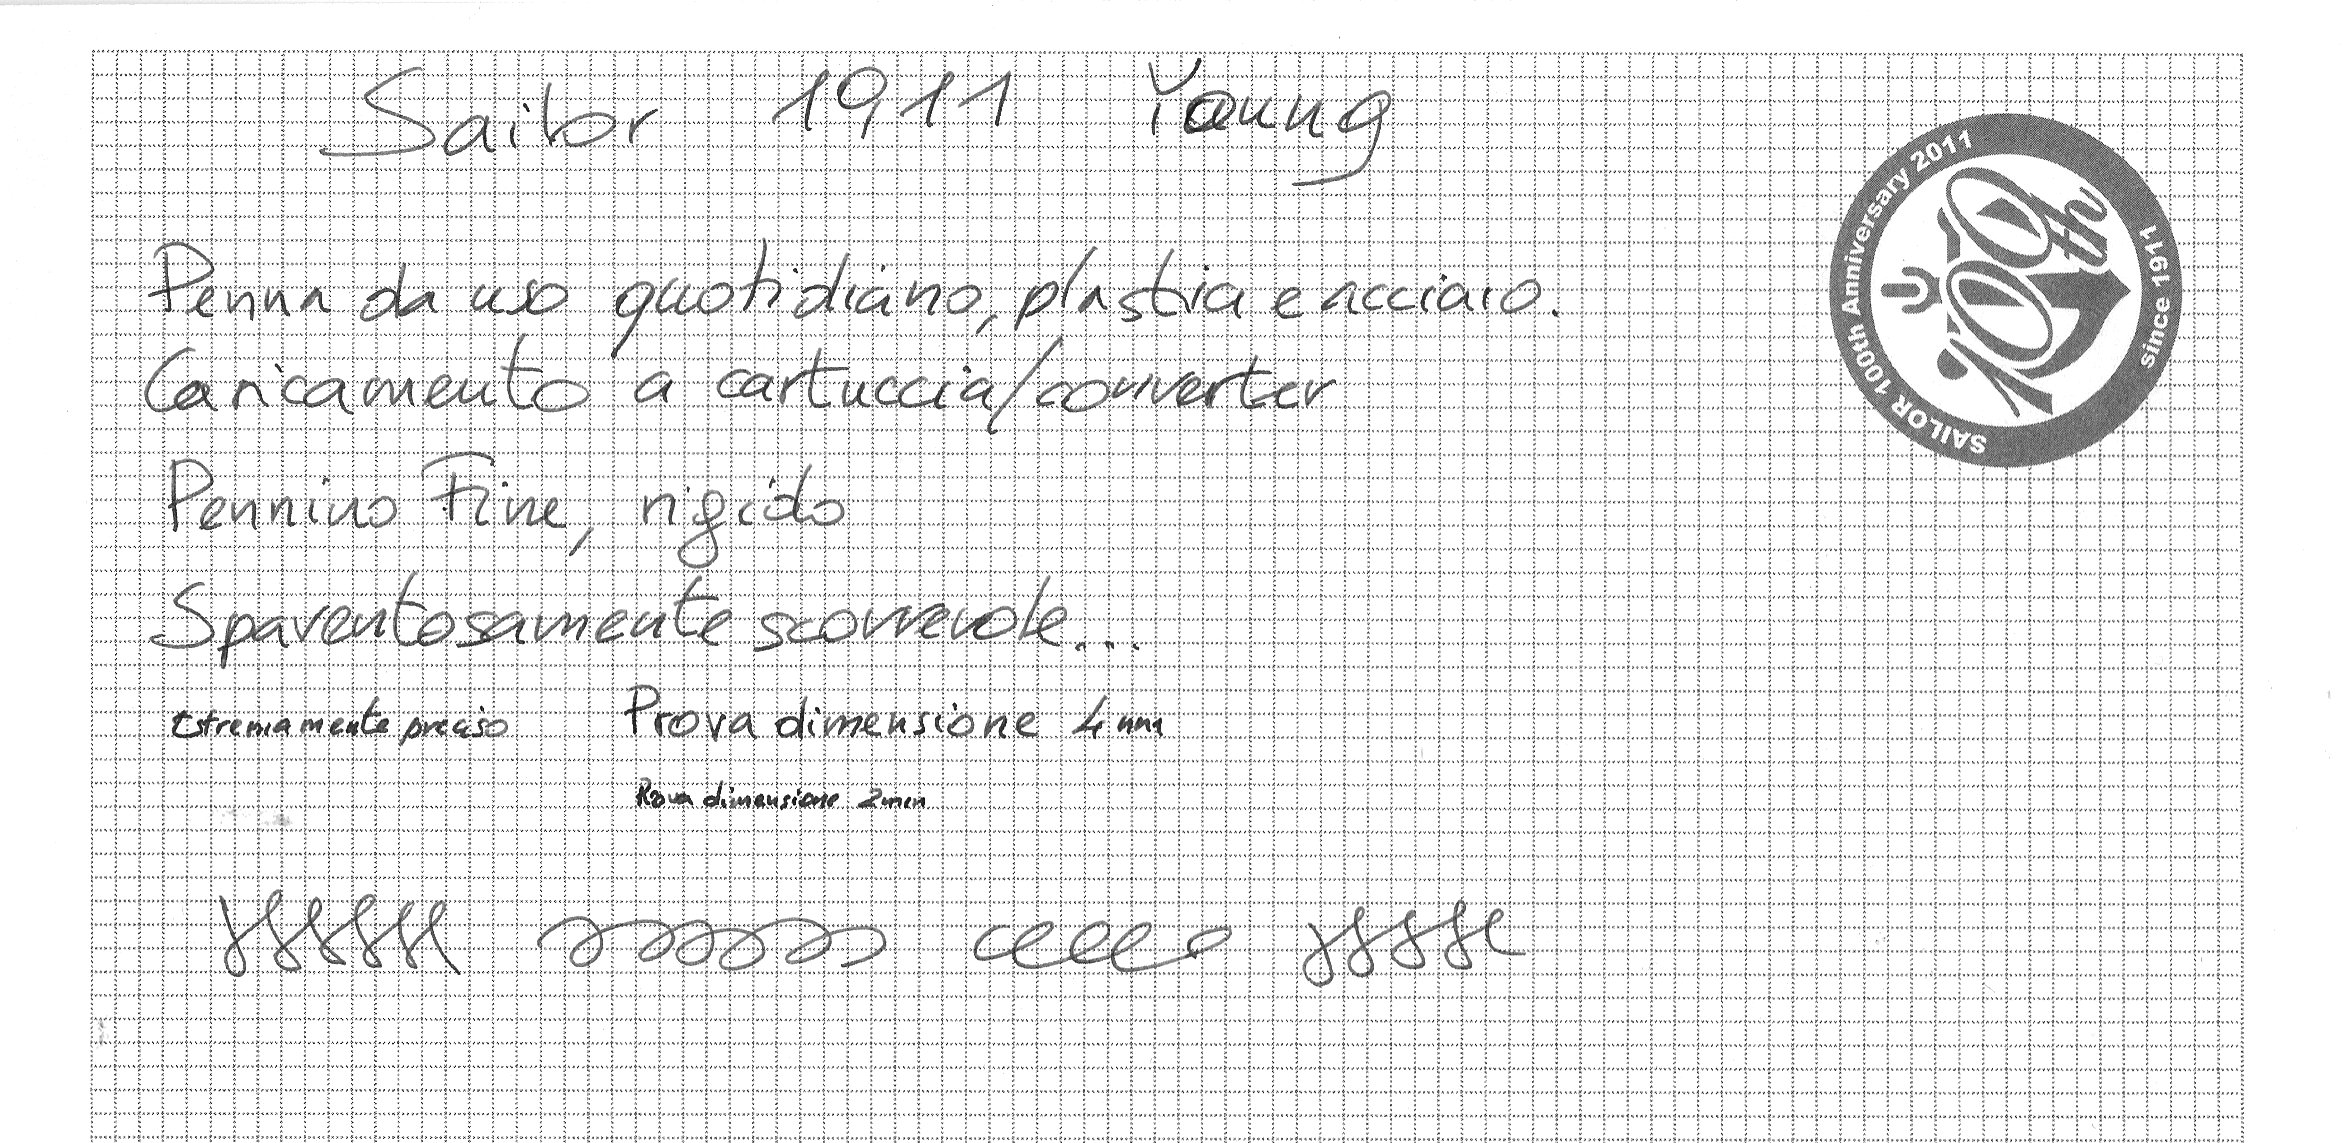 Sailor 1911 Young
Penna da uso quotidiano, plastica e acciaio.
Caricamento a cartuccia/converter
Pennino Fine, rigido
Spaventosamente scorrevole...
Estremamente preciso Prova dimensione 4mm
Prova dimensione 2mm
SAILOR 100th Anniversary 2011
100th
since 1911